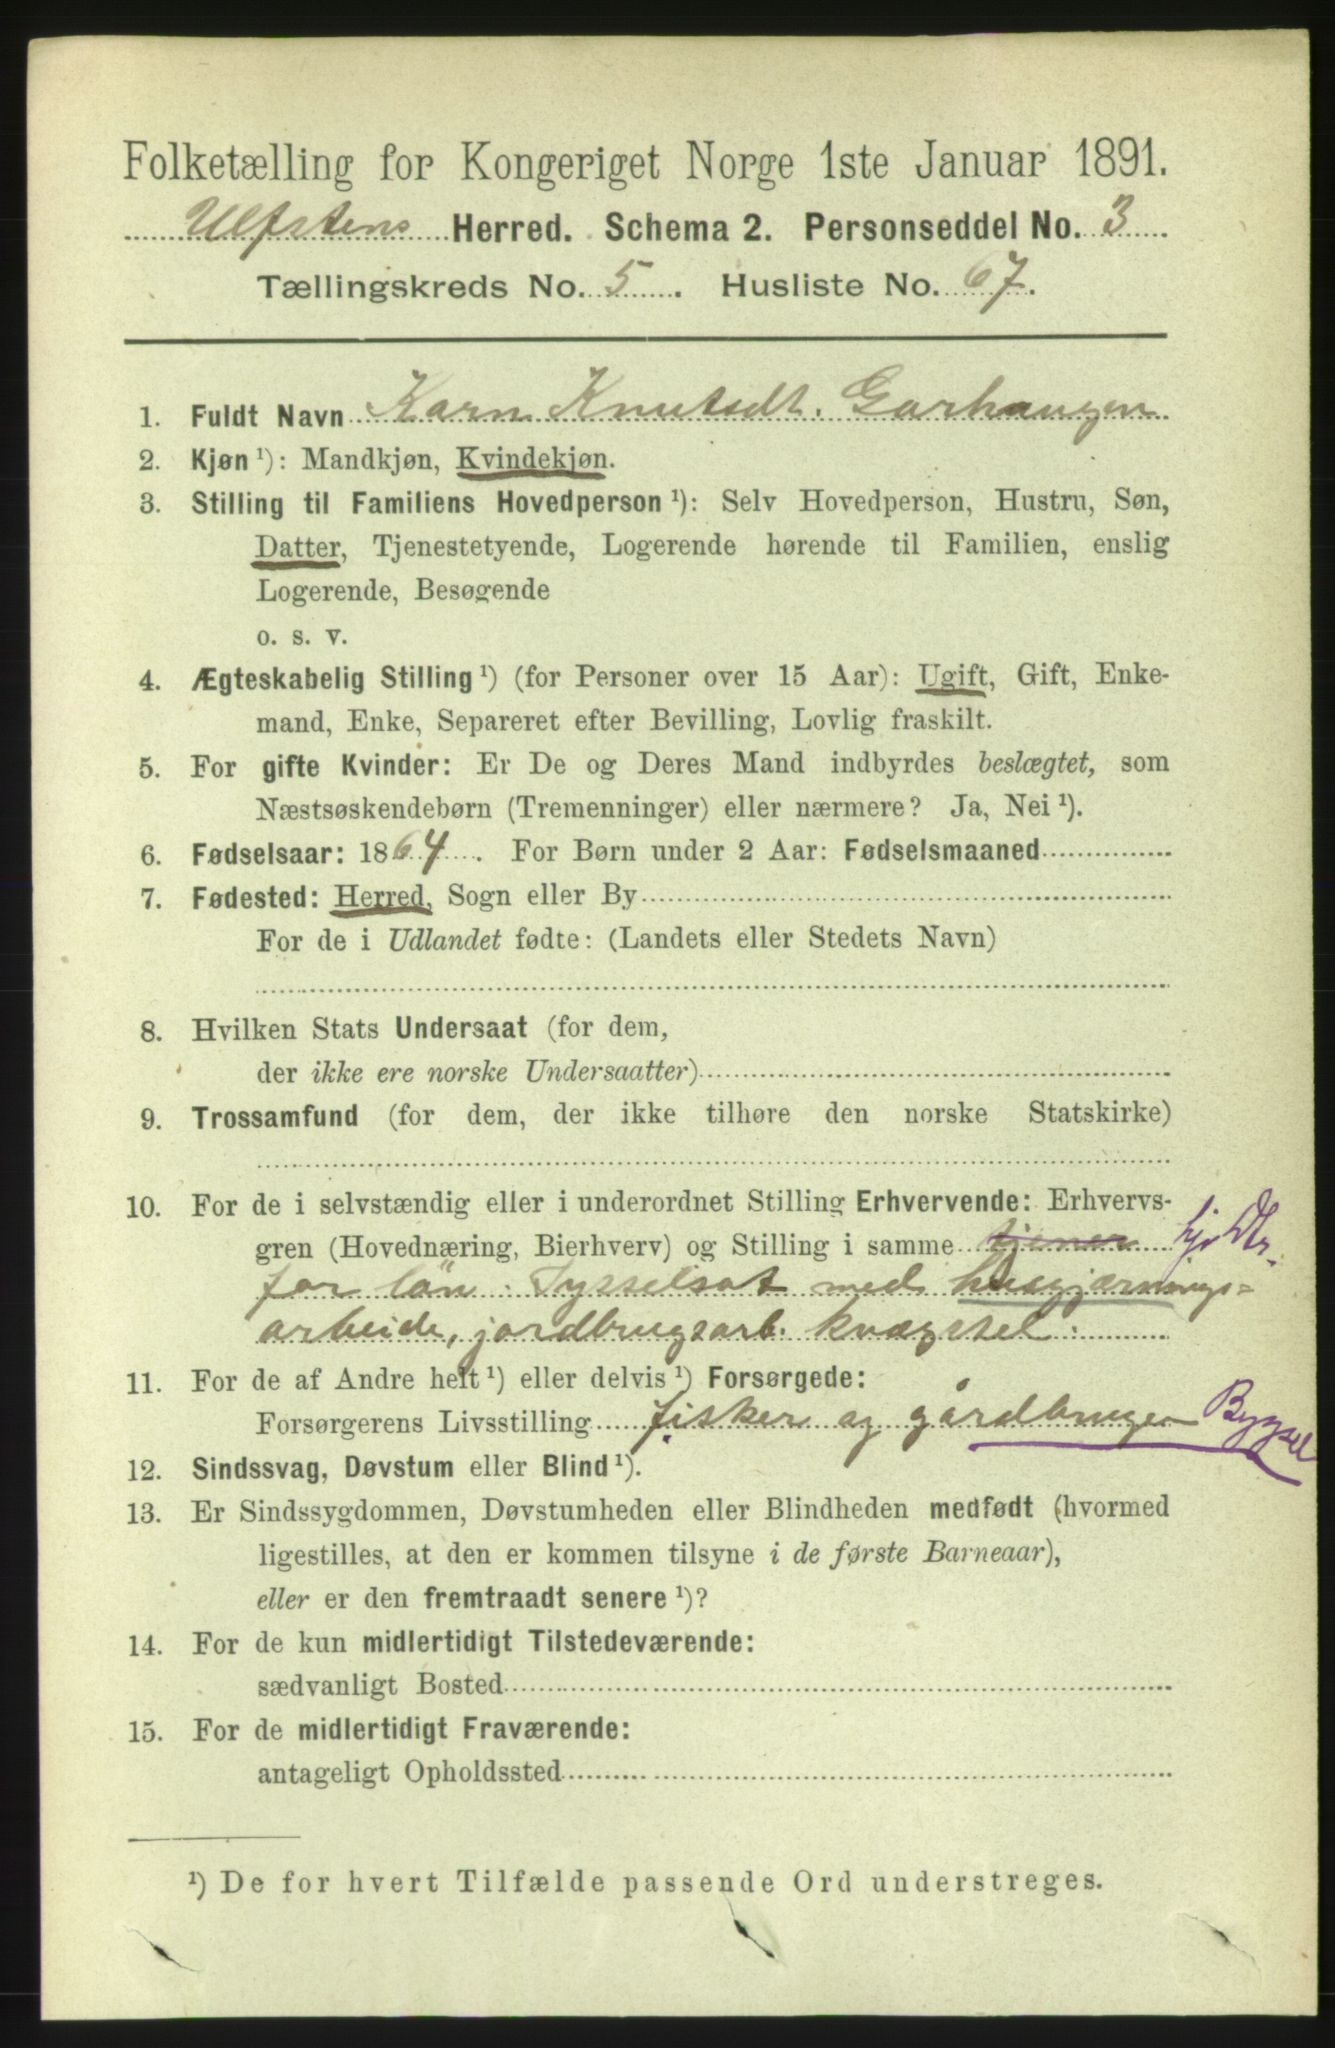 Folketælling for Kongeriget Norge 1ste Januar 1891.
Ulfstens Herred. Schema 2. Personseddel No. 3
Tællingskreds No. 5. Husliste No. 67.
1. Fuldt Navn Karn Knutsdt. Garhaugen
2. Kjøn ¹): Mandkjøn, Kvindekjøn.
3. Stilling til Familiens Hovedperson ¹): Selv Hovedperson, Hustru, Søn,
Datter, Tjenestetyende, Logerende hørende til Familien, enslig
Logerende, Besøgende
o. s. v.
4. Ægteskabelig Stilling ¹) (for Personer over 15 Aar): Ugift, Gift, Enke-
mand, Enke, Separeret efter Bevilling, Lovlig fraskilt.
5. For gifte Kvinder: Er De og Deres Mand indbyrdes beslægtet, som
Næstsøskendebørn (Tremenninger) eller nærmere? Ja, Nei ¹).
6. Fødselsaar: 1864. For Børn under 2 Aar: Fødselsmaaned
7. Fødested: Herred, Sogn eller By
For de i Udlandet fødte: (Landets eller Stedets Navn)
8. Hvilken Stats Undersaat (for dem,
der ikke ere norske Undersaatter)
9. Trossamfund (for dem, der ikke tilhøre den norske Statskirke)
10. For de i selvstændig eller i underordnet Stilling Erhvervende: Erhvervs-
gren (Hovednæring, Bierhverv) og Stilling i samme tjener hjv Dtr.
for løn. Sysselsat med husgjærnings-
arbeide, jordbrugsarb. kvægstel.
11. For de af Andre helt ¹) eller delvis ¹) Forsørgede:
Forsørgerens Livsstilling fisker og gårdbruger Bygsel
12. Sindssvag, Døvstum eller Blind ¹).
13. Er Sindssygdommen, Døvstumheden eller Blindheden medfødt (hvormed
ligestilles, at den er kommen tilsyne i de første Barneaar),
eller er den fremtraadt senere ¹)?
14. For de kun midlertidigt Tilstedeværende:
sædvanligt Bosted
15. For de midlertidigt Fraværende:
antageligt Opholdssted
¹) De for hvert Tilfælde passende Ord understreges.